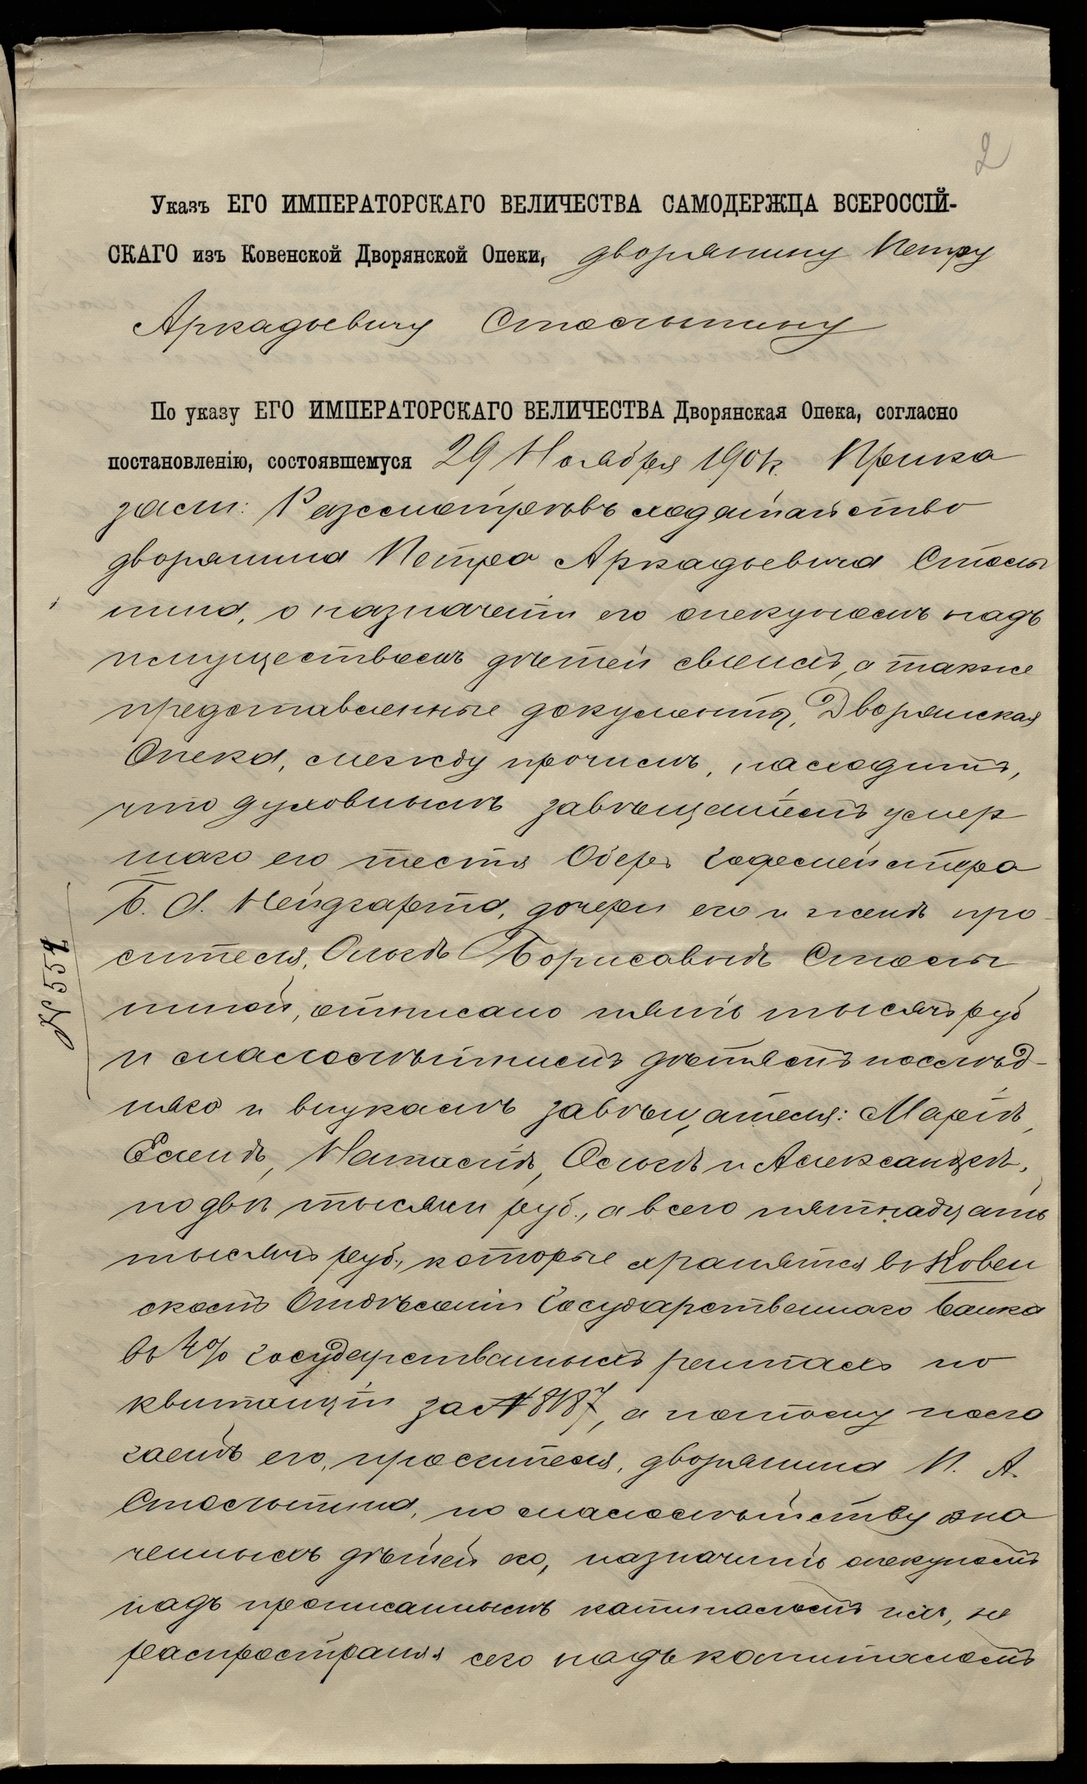 2
Указъ ЕГО ИМПЕРАТОРСКАГО ВЕЛИЧЕСТВА САМОДЕРЖЦА ВСЕРОССІЙ-
СКАГО изъ Ковенской Дворянской Опеки, дворянину Петру
Аркадьевичу Столыпину
По указу ЕГО ИМПЕРАТОРСКАГО ВЕЛИЧЕСТВА Дворянская Опека, согласно
постановленію, состоявшемуся 29 Ноября 190 г. Прика
зали: Разсмотрѣвъ ходатайство
дворянина Петра Аркадьевича Столы
пина, о назначеніи его опекуномъ надъ
имуществомъ дѣтей своихъ, а также
представленные документы, Дворянская
Опека, между прочимъ, находитъ,
что духовнымъ завѣщаніемъ умер
шаго его тестя Оберъ Гофмейстера
Б. А. Нейдгарта, дочери его и женѣ про-
сителя, Ольгѣ Борисовнѣ Столы
пиной, отписано пять тысячъ руб
и малолѣтнимъ дѣтямъ послѣд-
няго и внукамъ завѣщателя: Маріи,
Еленѣ, Наталіи, Ольгѣ и Александрѣ,
по двѣ тысячи руб., а всего пятнадцать
тысячъ руб., которые хранятся въ Ковен
скомъ Отдѣленіи Государственнаго банка
въ 4% государственныхъ рентахъ по
квитанціи за № 8187, а потому пола
гаетъ его, просителя, дворянина П. А.
Столыпина, по малолѣтству озна
ченныхъ дѣтей его, назначить опекуномъ
надъ прописаннымъ капиталомъ ихъ, не
распространяя сего надъ капиталомъ
№ 551